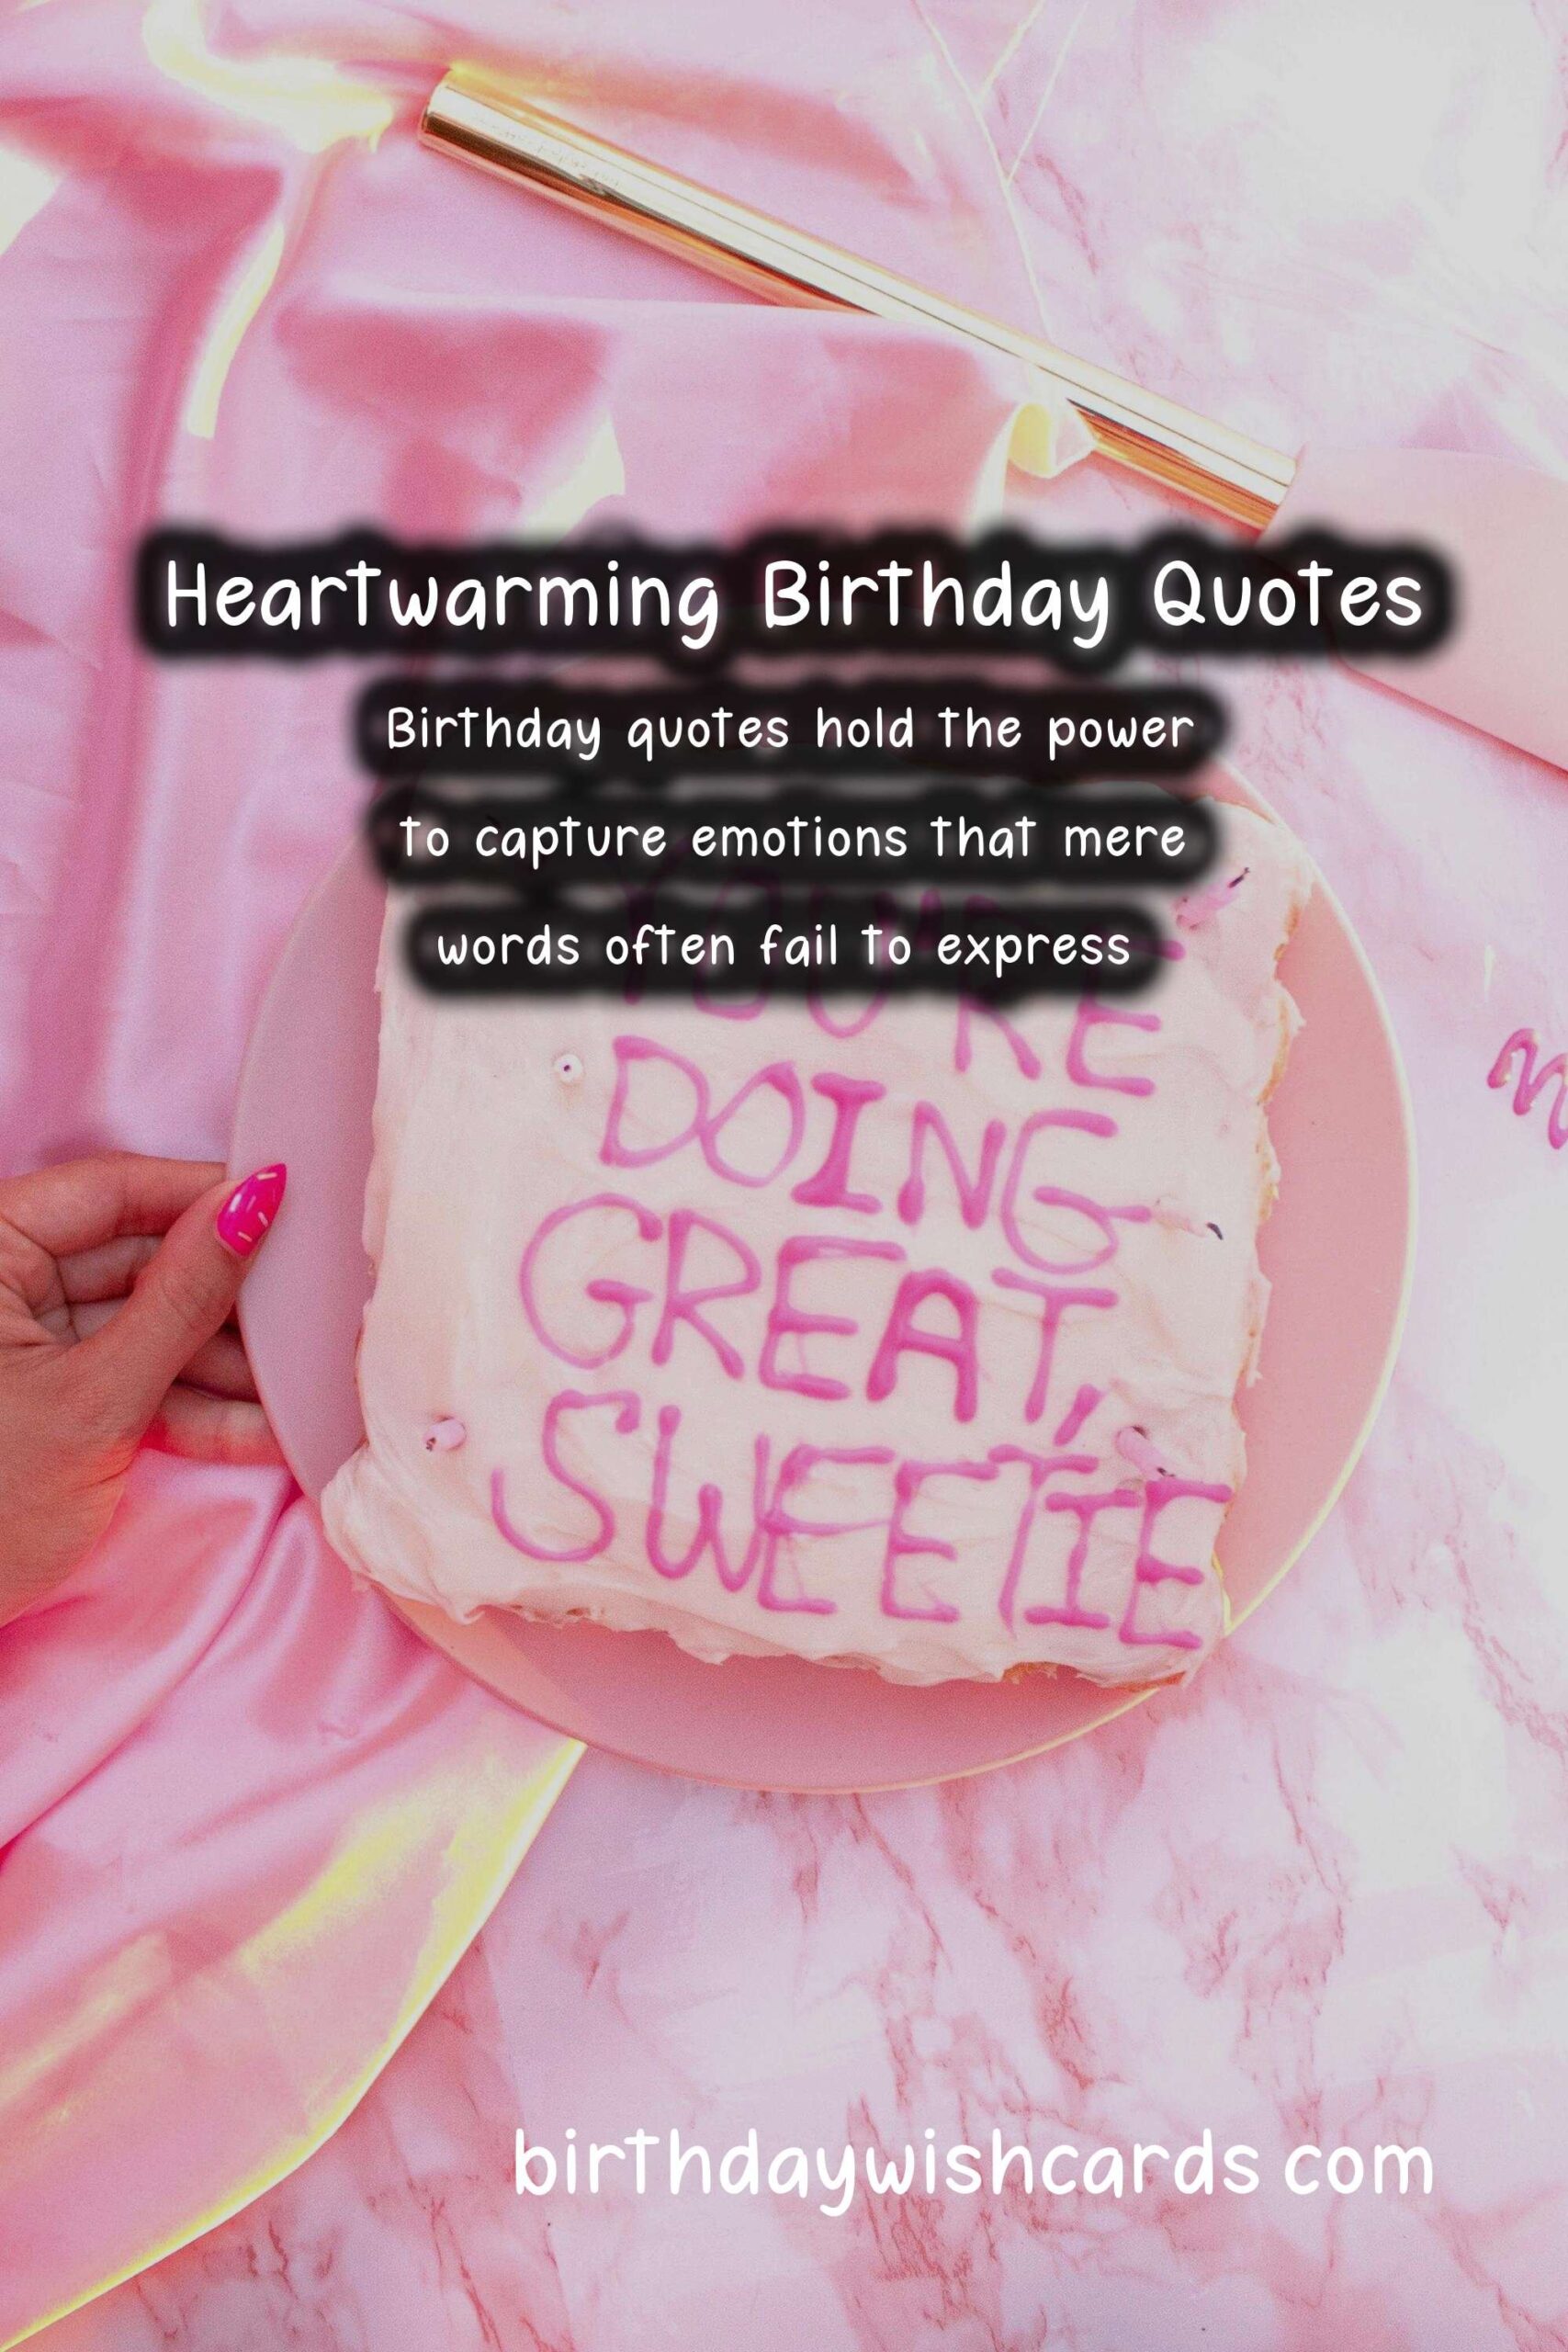 Heartwarming Birthday Quotes
Birthday quotes hold the power
to capture emotions that mere
words often fail to express
YOU'RE
DOING
GREAT,
SWEETIE
birthdaywishcards com